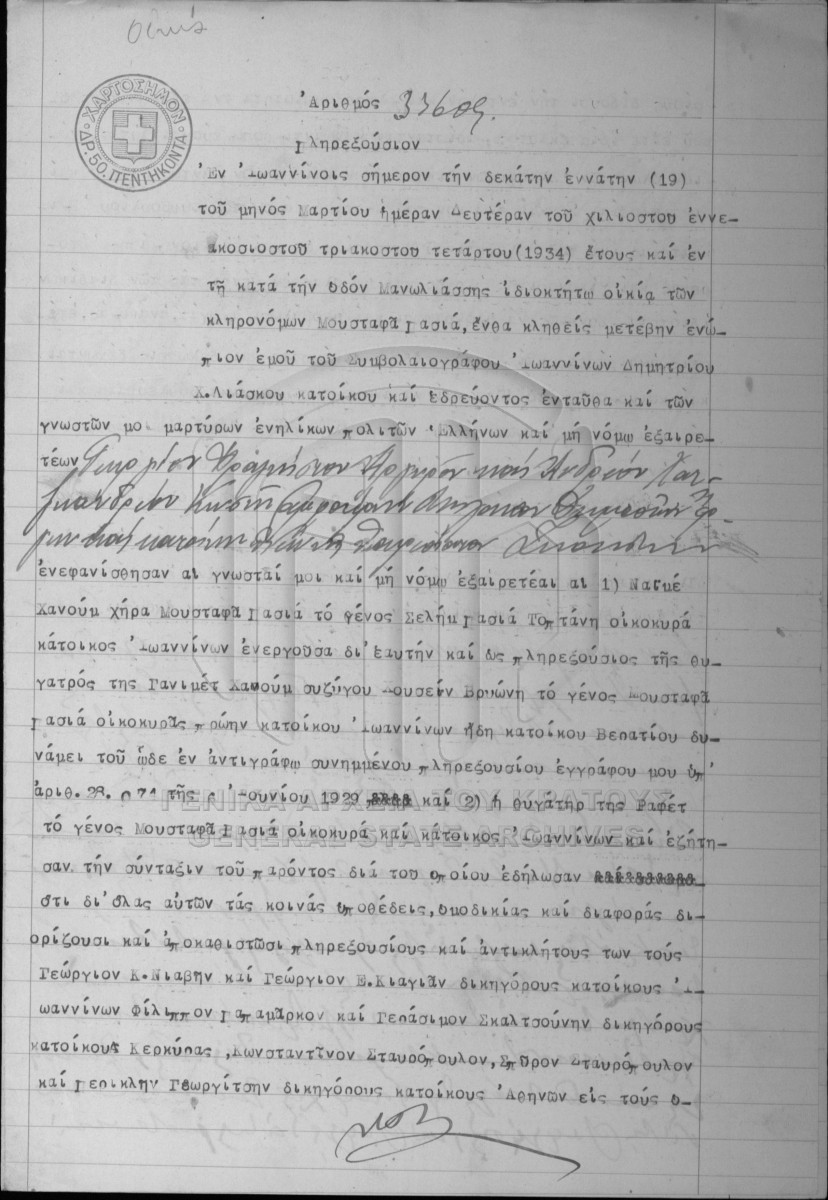 ΧΑΡΤΟΣΗΜΟΝ
ΔΡ. 50. ΠΕΝΤΗΚΟΝΤΑ
Ἀριθμός 33609.
Πληρεξούσιον
Ἐν Ἰωαννίνοις σήμερον τήν δεκάτην ἐννάτην (19)
τοῦ μηνός Μαρτίου ἡμέραν Δευτέραν τοῦ χιλιοστοῦ ἐννε-
ακοσιοστοῦ τριακοστοῦ τετάρτου (1934) ἔτους καί ἐν
τῇ κατά τήν ὁδόν Μανωλιάσσης ἰδιοκτήτῳ οἰκίᾳ τῶν
κληρονόμων Μουσταφᾶ Πασιά, ἔνθα κληθείς μετέβην ἐνώ-
πιον ἐμοῦ τοῦ Συμβολαιογράφου Ἰωαννίνων Δημητρίου
Χ. Λιάσκου κατοίκου καί ἑδρεύοντος ἐνταῦθα καί τῶν
γνωστῶν μο μαρτύρων ἐνηλίκων πολιτῶν Ἑλλήνων καί μή νόμῳ ἐξαιρε-
τέων Γεωργίου καί
ἐνεφανίσθησαν αἱ γνωσταί μοι καί μή νόμῳ ἐξαιρετέαι αἱ 1) Νασμέ
Χανούμ χήρα Μουσταφᾶ Πασιά τό γένος Σελήμ Πασιά Τοπτάνη οἰκοκυρά
κάτοικος Ἰωαννίνων ἐνεργοῦσα δι'ἑαυτήν καί ὡς πληρεξούσιος τῆς θυ-
γατρός της Γανιμέτ Χανούμ συζύγου Χουσεΐν Βρυώνη τό γένος Μουσταφᾶ
Πασιά οἰκοκυρᾶς πρώην κατοίκου Ἰωαννίνων ἤδη κατοίκου Βερατίου δυ-
νάμει τοῦ ὧδε ἐν ἀντιγράφῳ συνημμένου πληρεξουσίου ἐγγράφου μου ὑπ'
ἀριθ. τῆς Ἰουνίου 1929 καί 2) ἡ θυγάτηρ της Ραφέτ
τό γένος Μουσταφᾶ Πασιά οἰκοκυρά καί κάτοικος Ἰωαννίνων καί ἐζήτη-
σαν τήν σύνταξιν τοῦ παρόντος διά τοῦ ὁποίου ἐδήλωσαν
ὅτι δι'ὅλας αὐτῶν τάς κοινάς ὑποθέσεις, ὁμοδικίας καί διαφοράς δι-
ορίζουσι καί ἀποκαθιστῶσι πληρεξουσίους καί ἀντικλήτους των τούς
Γεώργιον Κ. Νιαβῆν καί Γεώργιον Ε. Κιαγιᾶν δικηγόρους κατοίκους Ἰ-
ωαννίνων Φίλιππον Παπαμάρκον καί Γεράσιμον Σκαλτσούνην δικηγόρους
κατοίκους Κερκύρας, Κωνσταντῖνον Σταυρόπουλον, Σπῦρον Σταυρόπουλον
καί Περικλῆν Γεωργίτσην δικηγόρους κατοίκους Ἀθηνῶν εἰς τούς ὁ-
ΓΕΝΙΚΑ ΑΡΧΕΙΑ ΤΟΥ ΚΡΑΤΟΥΣ
GENERAL STATE ARCHIVES